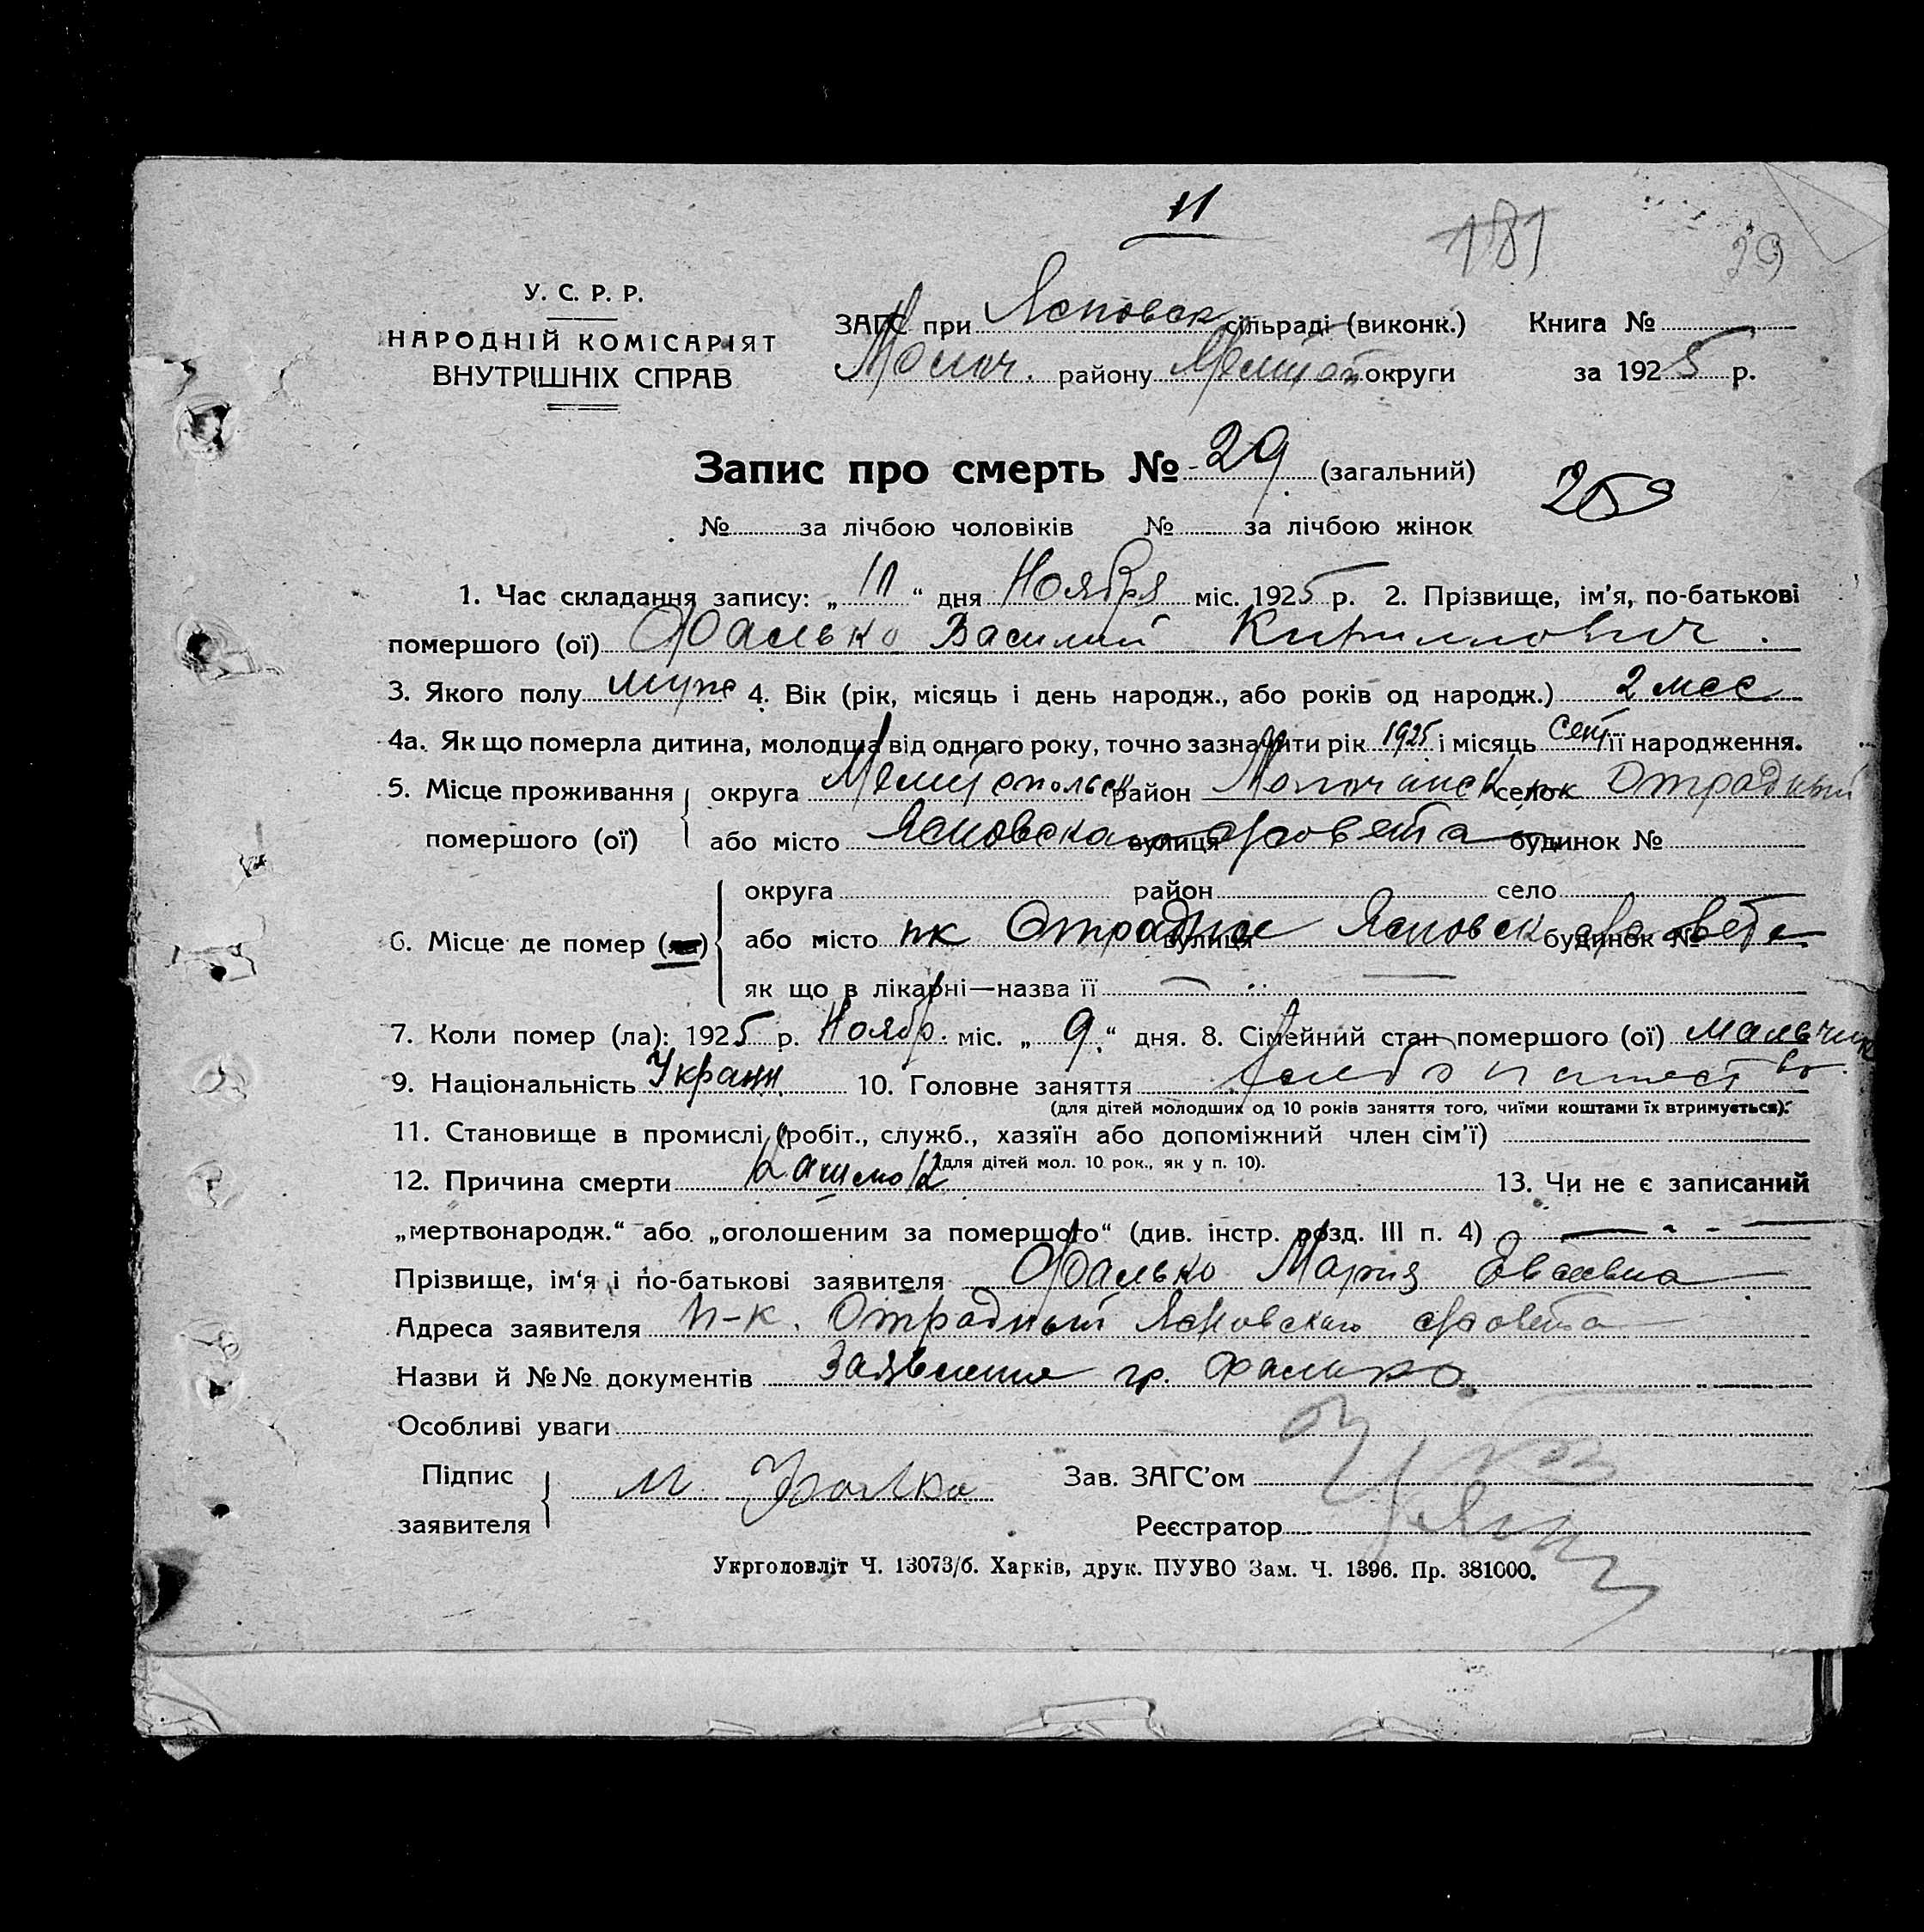 11
181
29
У. С. Р. Р.
НАРОДНІЙ КОМІСАРІЯТ
ВНУТРІШНІХ СПРАВ
ЗАГС при Ясновск сільраді (виконк.) Книга №
Молоч. району Мелитоп округи за 1925 р.
Запис про смерть № 29 (загальний)
№ за лічбою чоловіків № за лічбою жінок
1. Час складання запису: „ “ дня Ноября міс. 1925 р. 2. Прізвище, ім'я, по-батькові
помершого (ої) Фалько Василий Кириллович.
3. Якого полу муже 4. Вік (рік, місяць і день народж., або років од народж.) 2 мес
4а. Як що померла дитина, молодша від одного року, точно зазначити рік 1925 і місяць Сент її народження.
5. Місце проживання округа Мелитопольск район Молочанск село пк Отрадный
помершого (ої) або місто Ясновского вулиця с/совета будинок №
округа район село
6. Місце де помер ( ) або місто пк Отрадное вулиця Ясновск с/совета будинок №
як що в лікарні—назва її —
7. Коли помер (ла): 1925 р. Ноябр. міс. „ 9 “ дня. 8. Сімейний стан помершого (ої) мальчик
9. Національність Украин 10. Головне заняття хлебопашество
(для дітей молодших од 10 років заняття того, чиїми коштами їх втримується).
11. Становище в промислі (робіт., служб., хазяїн або допоміжний член сім'ї)
(для дітей мол. 10 рок., як у п. 10).
12. Причина смерти 13. Чи не є записаний
„мертвонародж.“ або „оголошеним за помершого“ (див. інстр. розд. III п. 4) —
Прізвище, ім'я і по-батькові заявителя Фалько Мария Евсеевна
Адреса заявителя п-к. Отрадный Ясновского с/совета
Назви й №№ документів Заявление гр. Фалько.
Особливі уваги
Підпис М Фалко Зав. ЗАГС'ом
заявителя Реєстратор
Укрголовліт Ч. 13073/б. Харків, друк. ПУУВО Зам. Ч. 1396. Пр. 381000.